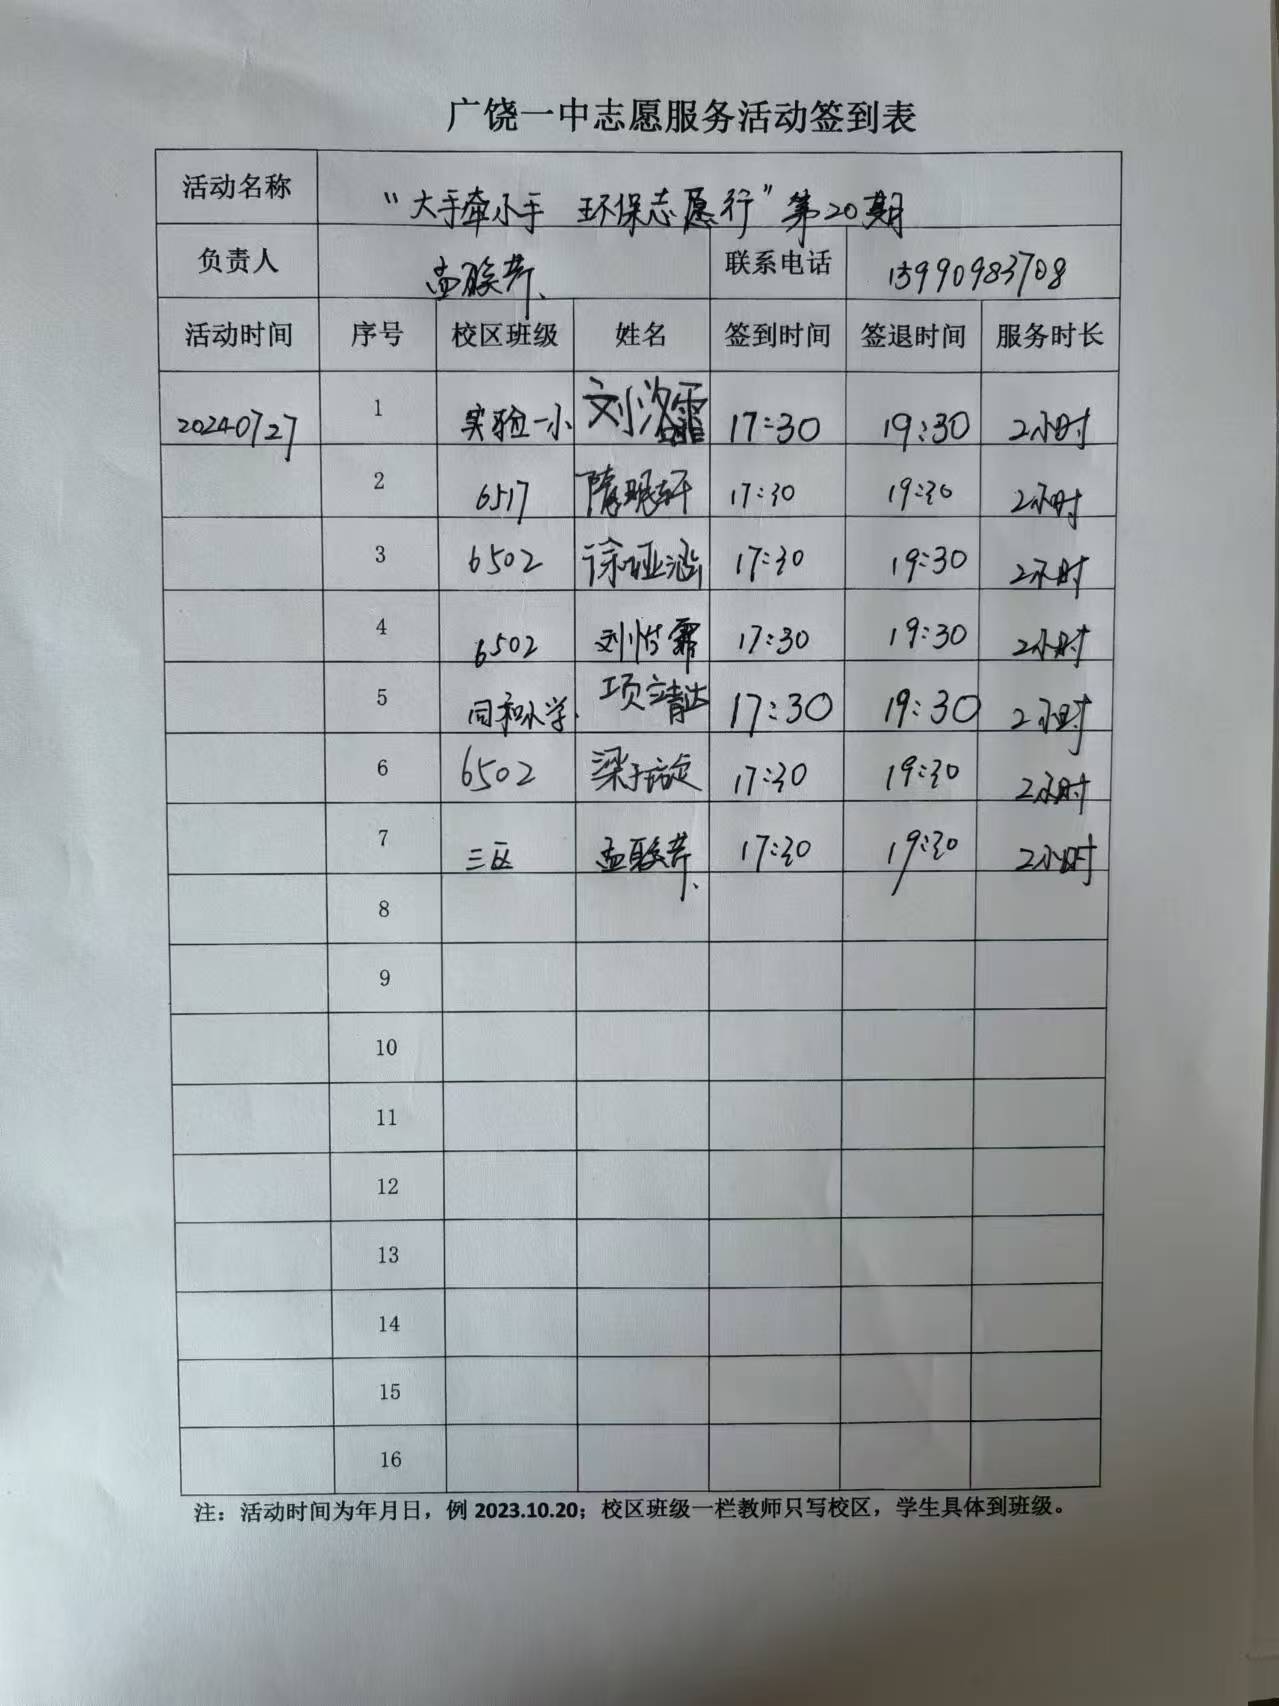 广饶一中志愿服务活动签到表
活动名称 “大手牵小手 环保志愿行”第20期
负责人 孟联芹 联系电话 13990983708
活动时间 序号 校区班级 姓名 签到时间 签退时间 服务时长
20240727 1 实验一小 刘洛霏 17:30 19:30 2小时
2 6517 隋珉轩 17:30 19:30 2小时
3 6502 徐亚涵 17:30 19:30 2小时
4 6502 刘怡霏 17:30 19:30 2小时
5 同和小学 项靖达 17:30 19:30 2小时
6 6502 梁 17:30 19:30 2小时
7 三区 孟联芹 17:30 19:30 2小时
8
9
10
11
12
13
14
15
16
注：活动时间为年月日，例 2023.10.20；校区班级一栏教师只写校区，学生具体到班级。